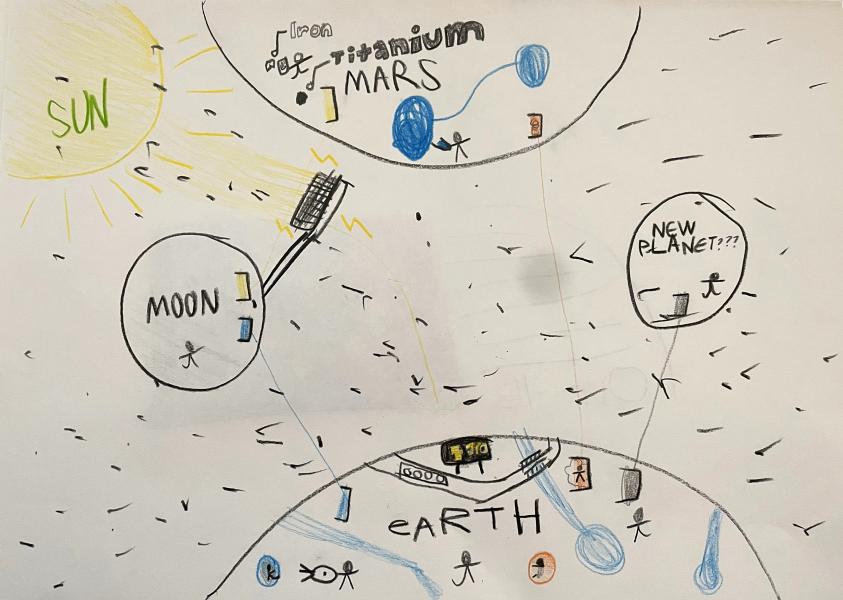 SUN
Iron
Titanium
MARS
MOON
NEW
PLANET???
eARTH